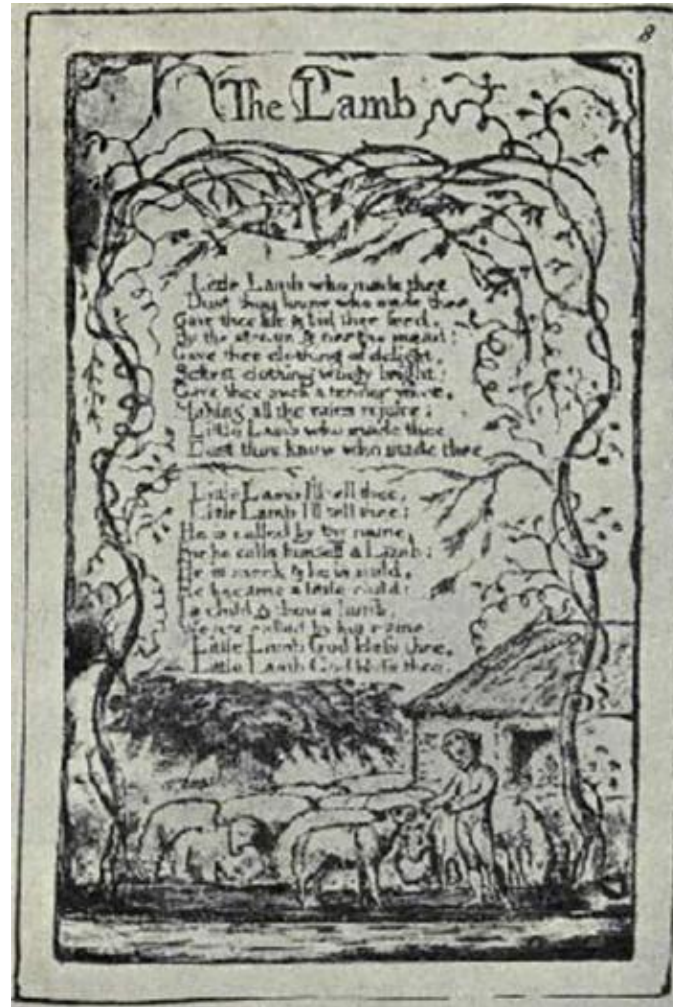 8
The Lamb
Little Lamb who made thee
Dost thou know who made thee
Gave thee life & bid thee feed,
By the stream & o'er the mead;
Gave thee clothing of delight,
Softest clothing wooly bright;
Gave thee such a tender voice,
Making all the vales rejoice;
Little Lamb who made thee
Dost thou know who made thee
Little Lamb I'll tell thee,
Little Lamb I'll tell thee;
He is called by thy name,
For he calls himself a Lamb;
He is meek & he is mild,
He became a little child;
I a child & thou a lamb,
We are called by his name.
Little Lamb God bless thee,
Little Lamb God bless thee.